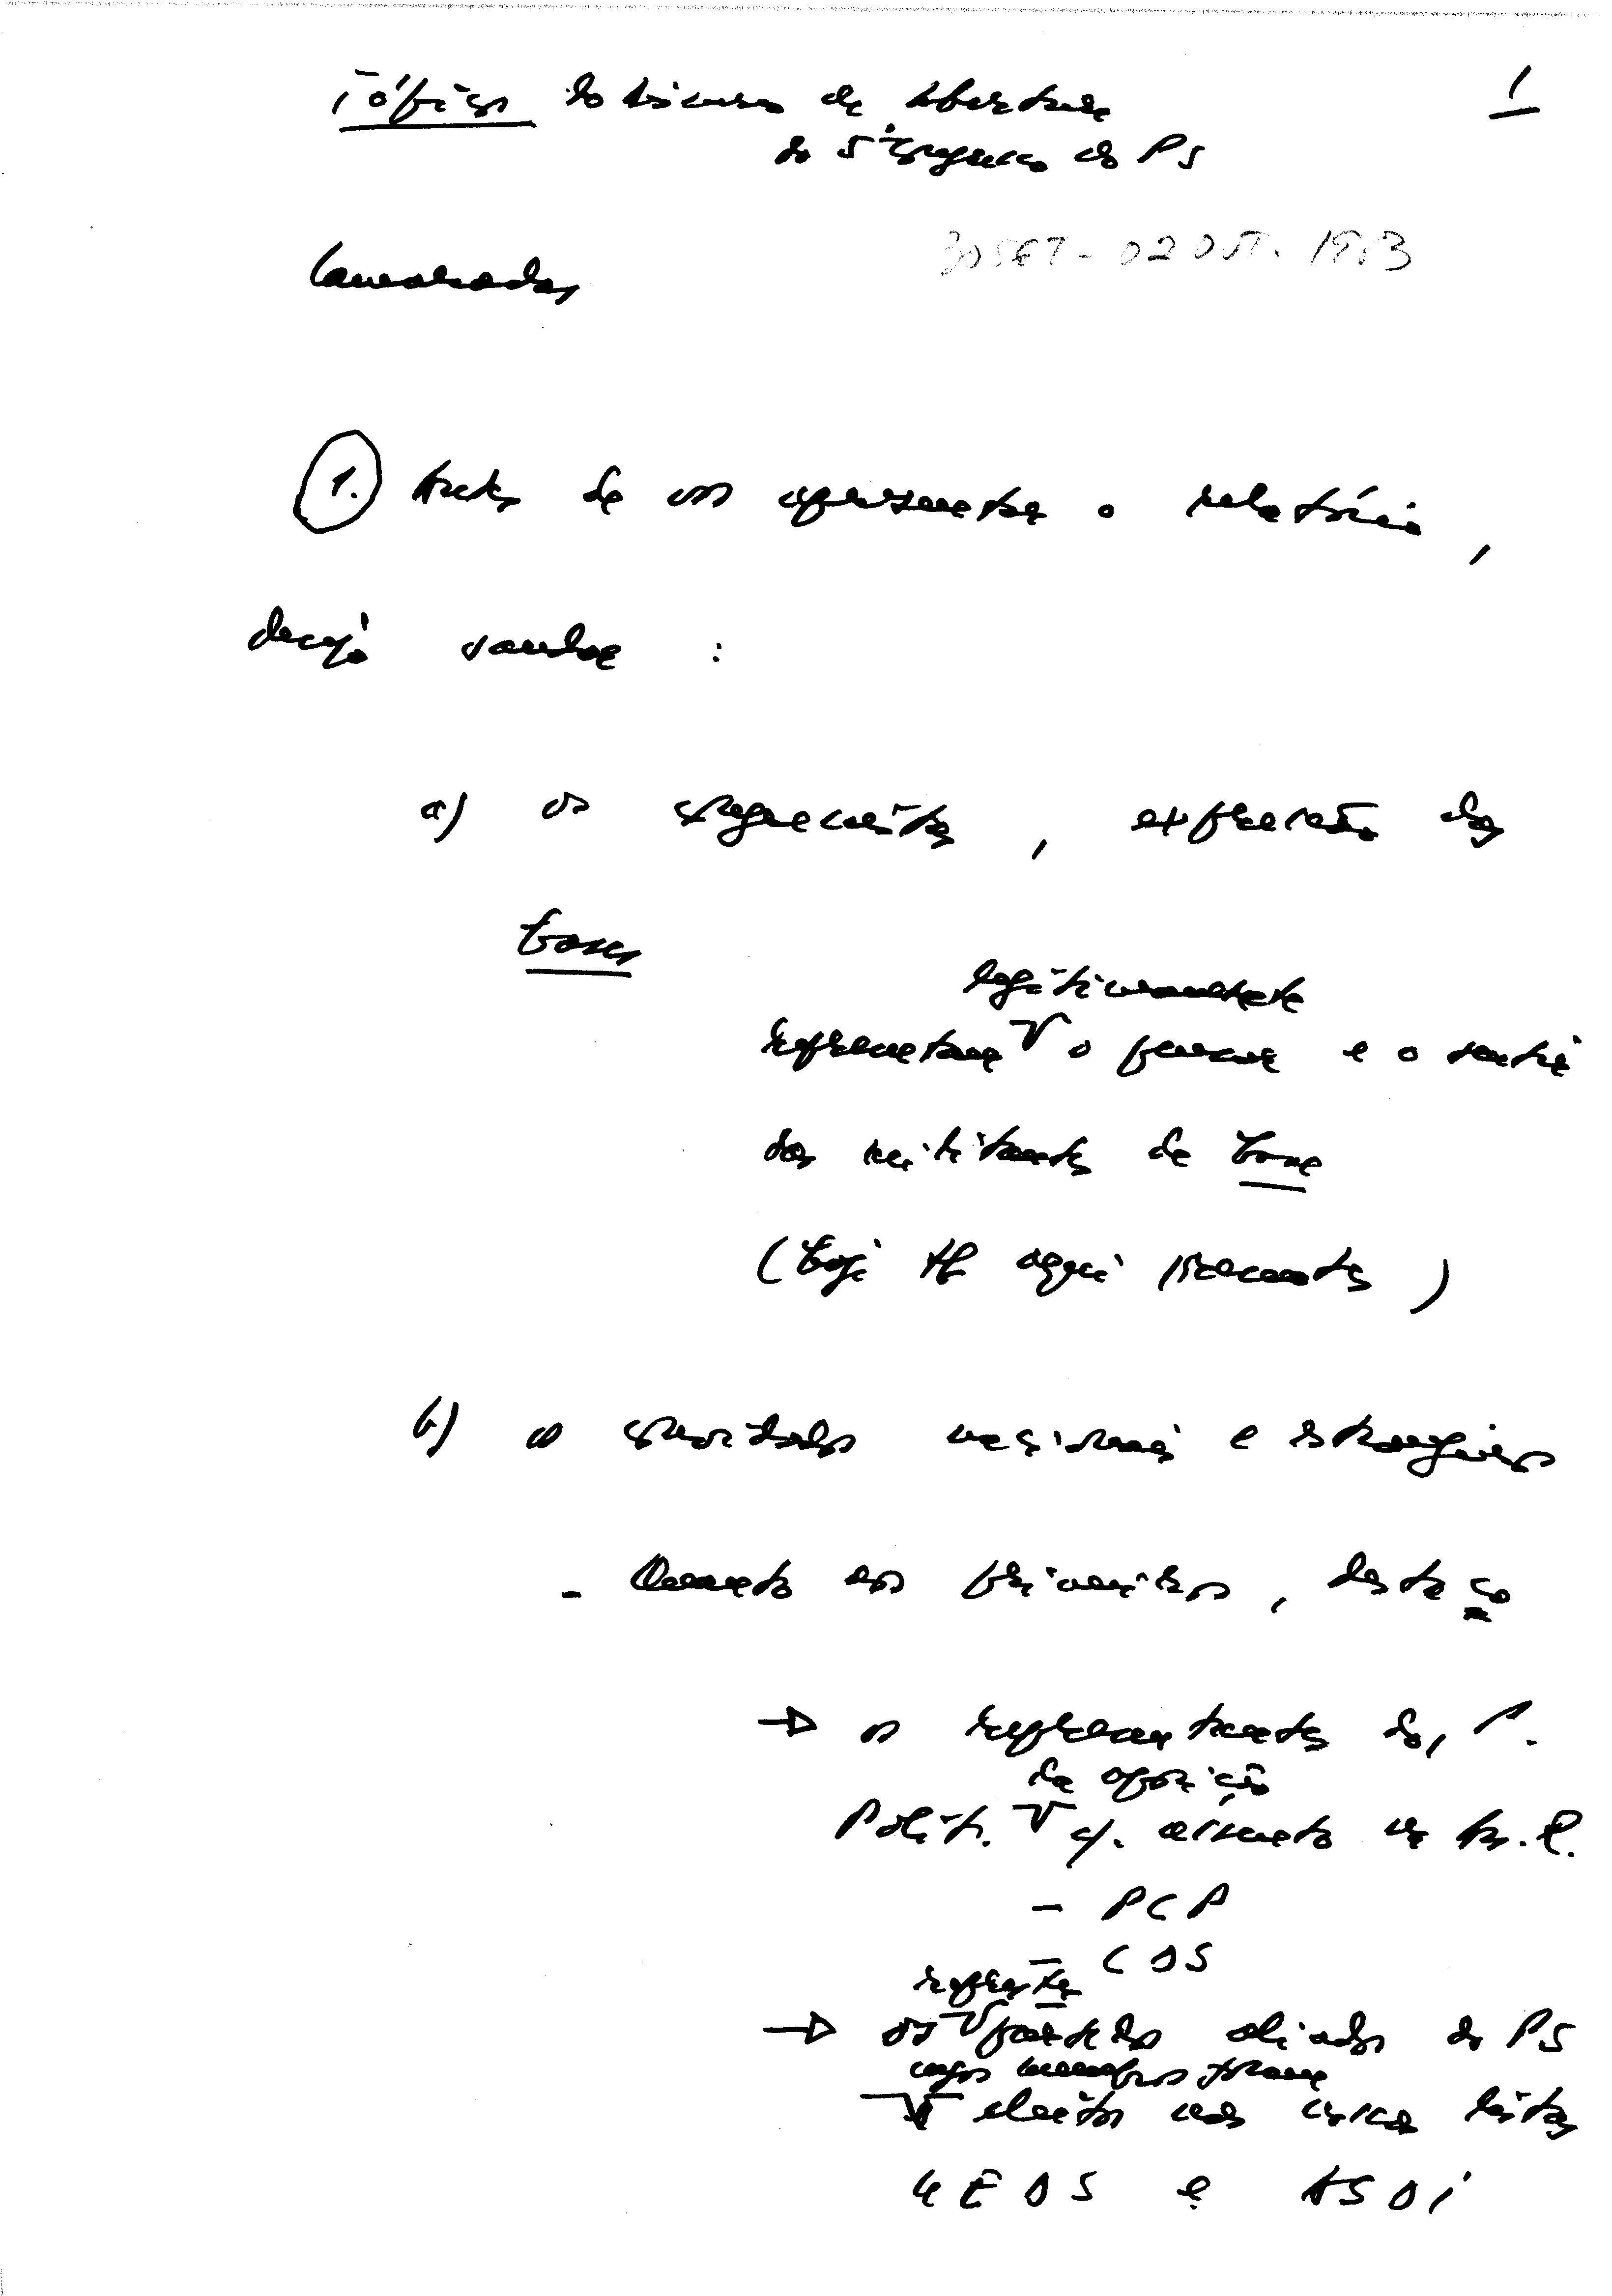 Tópicos do discurso de abertura
1
do 5º Congresso do PS
30 SET - 02 OUT. 1983
Camaradas,
1. Antes de vos apresentar o relatório,
desejo saudar :
a) os congressistas, expressão das
bases
legitimamente
representam o pensar e o sentir
dos militantes de base
(hoje aqui presentes)
b) os convidados nacionais e estrangeiros
- Quanto aos primeiros, destaco
→ os representantes dos P.
da oposição
Polít. c/. assento na A.R.
- PCP
- CDS
→ os partidos aliados do PS
cujos membros foram
eleitos nas nossas listas
UEDS e ASDI